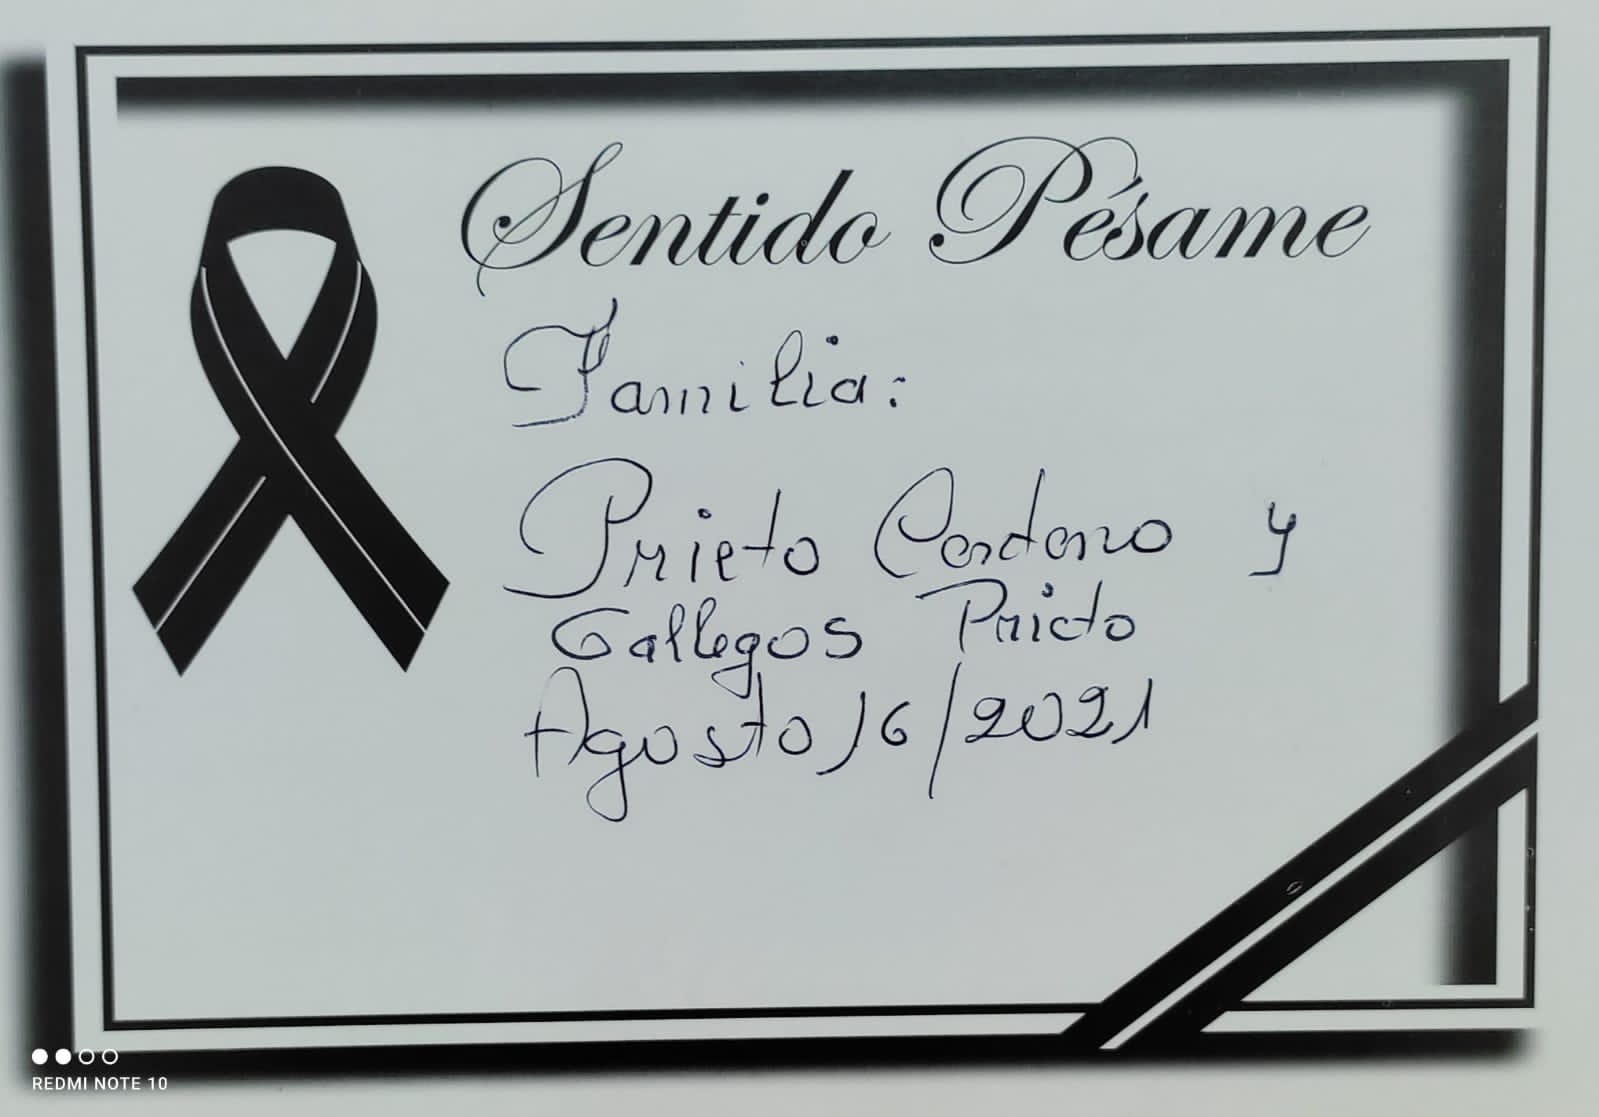 Sentido Pésame
Familia:
Prieto Cardozo y
Gallegos Prieto
Agosto 16/2021
REDMI NOTE 10